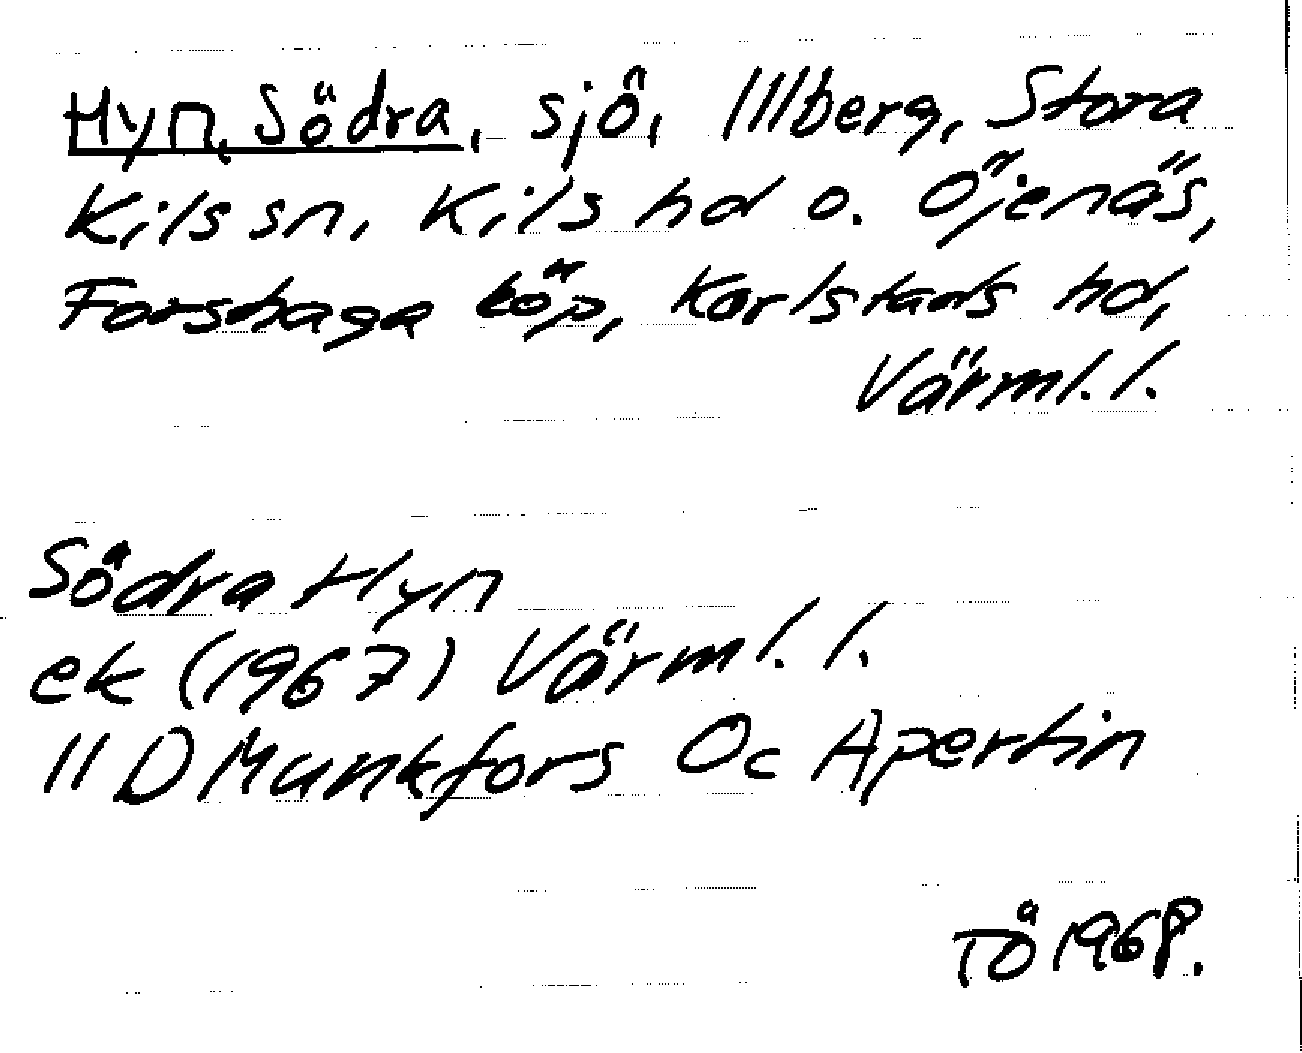 Hyn, Södra, sjö, Illberg, Stora
Kils sn, Kils hd o. Öjenäs,
Forshaga köp, Karlstads hd,
Värml. l.
Södra Hyn
ek (1967) Värml. l.
11 D Munkfors Oc Apertin
TÖ 1968.